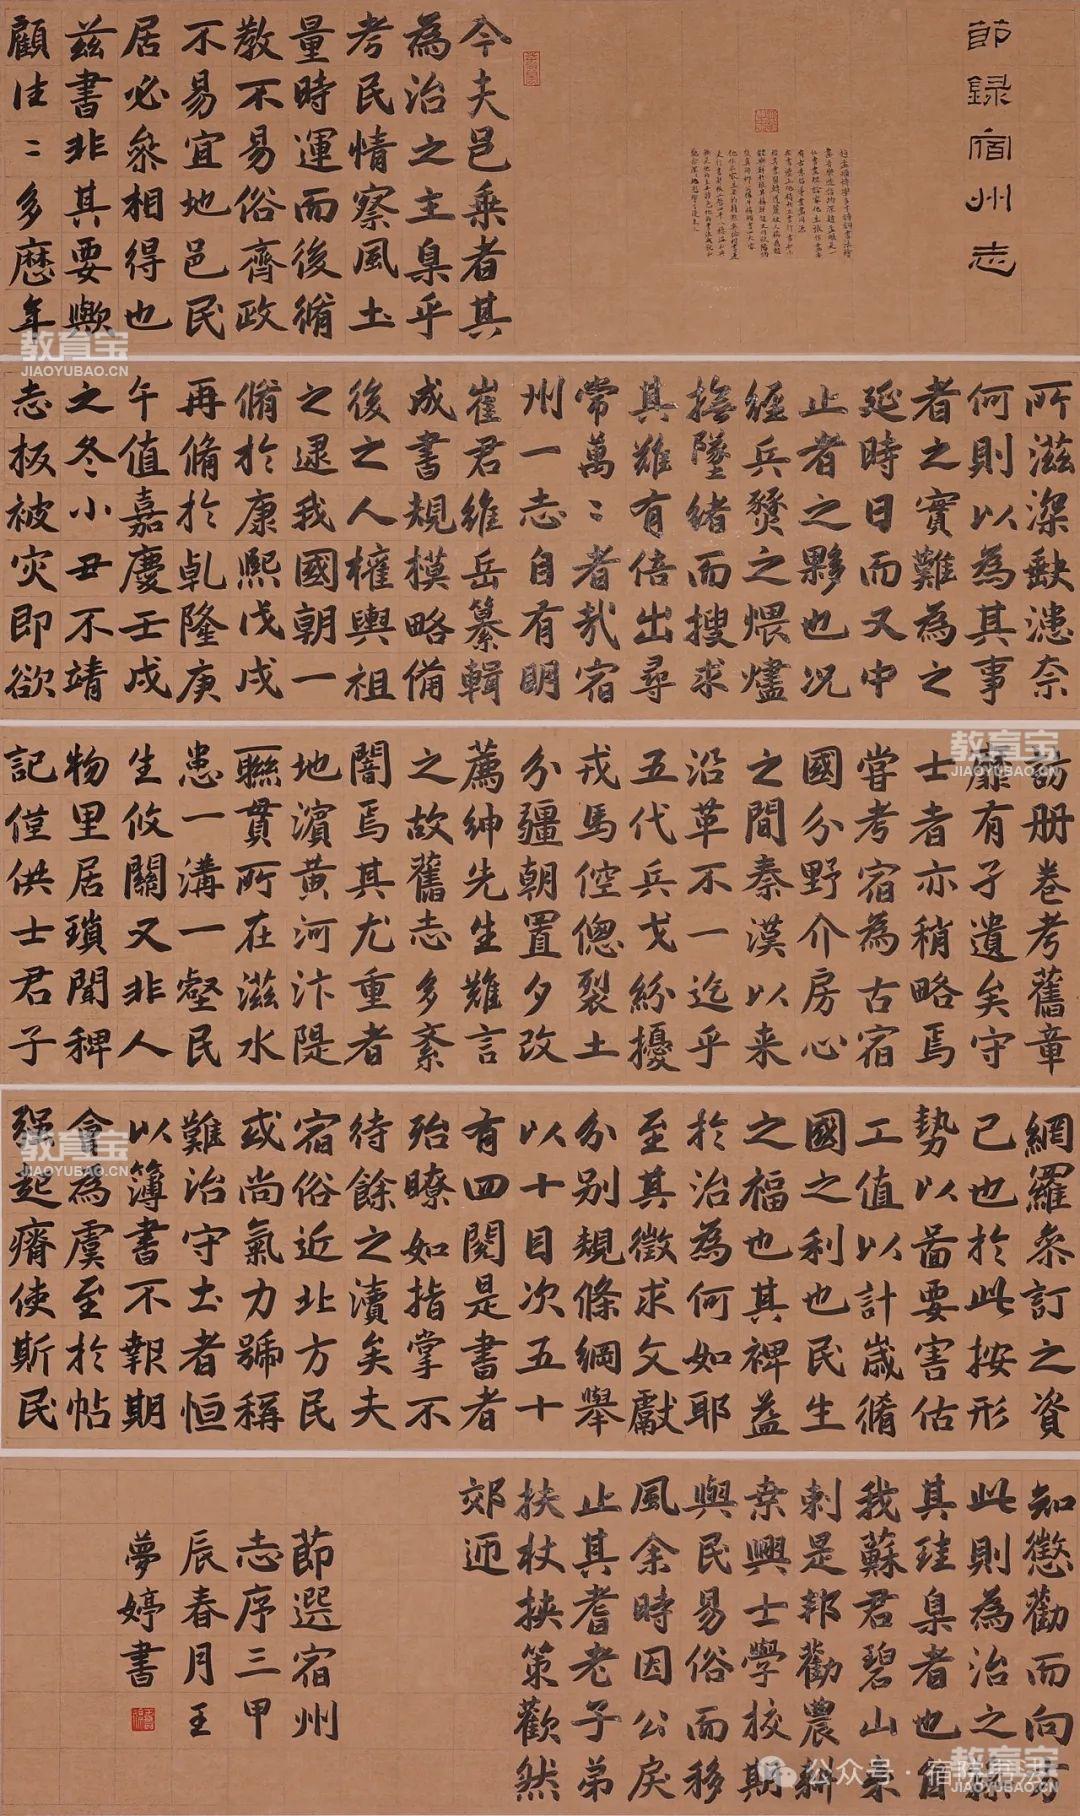 節録宿州志
今夫邑乘者其
為治之主臬乎
考民情察風土
量時運而後脩
教不易俗齊政
不易宜地邑民
居必叅相得也
茲書非其要歟
顧往〻多歷年
所滋深缺漶奈
何則以為其事
者之實難為之
延時日而又中
止者之夥也况
經兵燹之煨燼
撫墜緒而搜求
其難有倍出尋
常萬〻者㢤宿
州一志自有明
崔君維岳纂輯
成書規模略備
後之人權輿祖
之逮我國朝一
脩於康熙戊戌
再脩於乹隆庚
午值嘉慶壬戌
之冬小丑不靖
志板被灾即欲
訪册卷考舊章
靡有孑遺矣守
士者亦稍略焉
嘗考宿為古宿
國分野介房心
之間秦漢以来
沿革不一迄乎
五代兵戈紛擾
戎馬倥傯裂土
分疆朝置夕改
薦紳先生難言
之故舊志多紊
闇焉其尤重者
地濱黃河汴隄
聯貫所在滋水
患一溝一壑民
生攸關又非人
物里居瑣聞稗
記僅供士君子
網羅叅訂之資
已也於此按形
勢以啚要害估
工值以計歲脩
國之利也民生
之福也其裨益
於治為何如耶
至其徵求文獻
分別規條綱舉
以十目次五十
有四閱是書者
殆瞭如指掌不
待餘之瀆矣夫
宿俗近北方民
或尚氣力號稱
難治守土者恒
以簿書不報期
會為虞至於帖
强起瘠使斯民
知懲勸而向方
此則為治之
其珪臬者也自
我蘇君碧山来
刺是邦勸農耕
桒興士學挍期
與民易俗而移
風余時因公戾
止其耆老子弟
扶杖挾策歡然
郊迎
節選宿州
志序三甲
辰春月王
夢婷書
教育宝
JIAOYUBAO.CN
教育宝
JIAOYUBAO.CN
教育宝
JIAOYUBAO.CN
教育宝
JIAOYUBAO.CN
公众号·宿